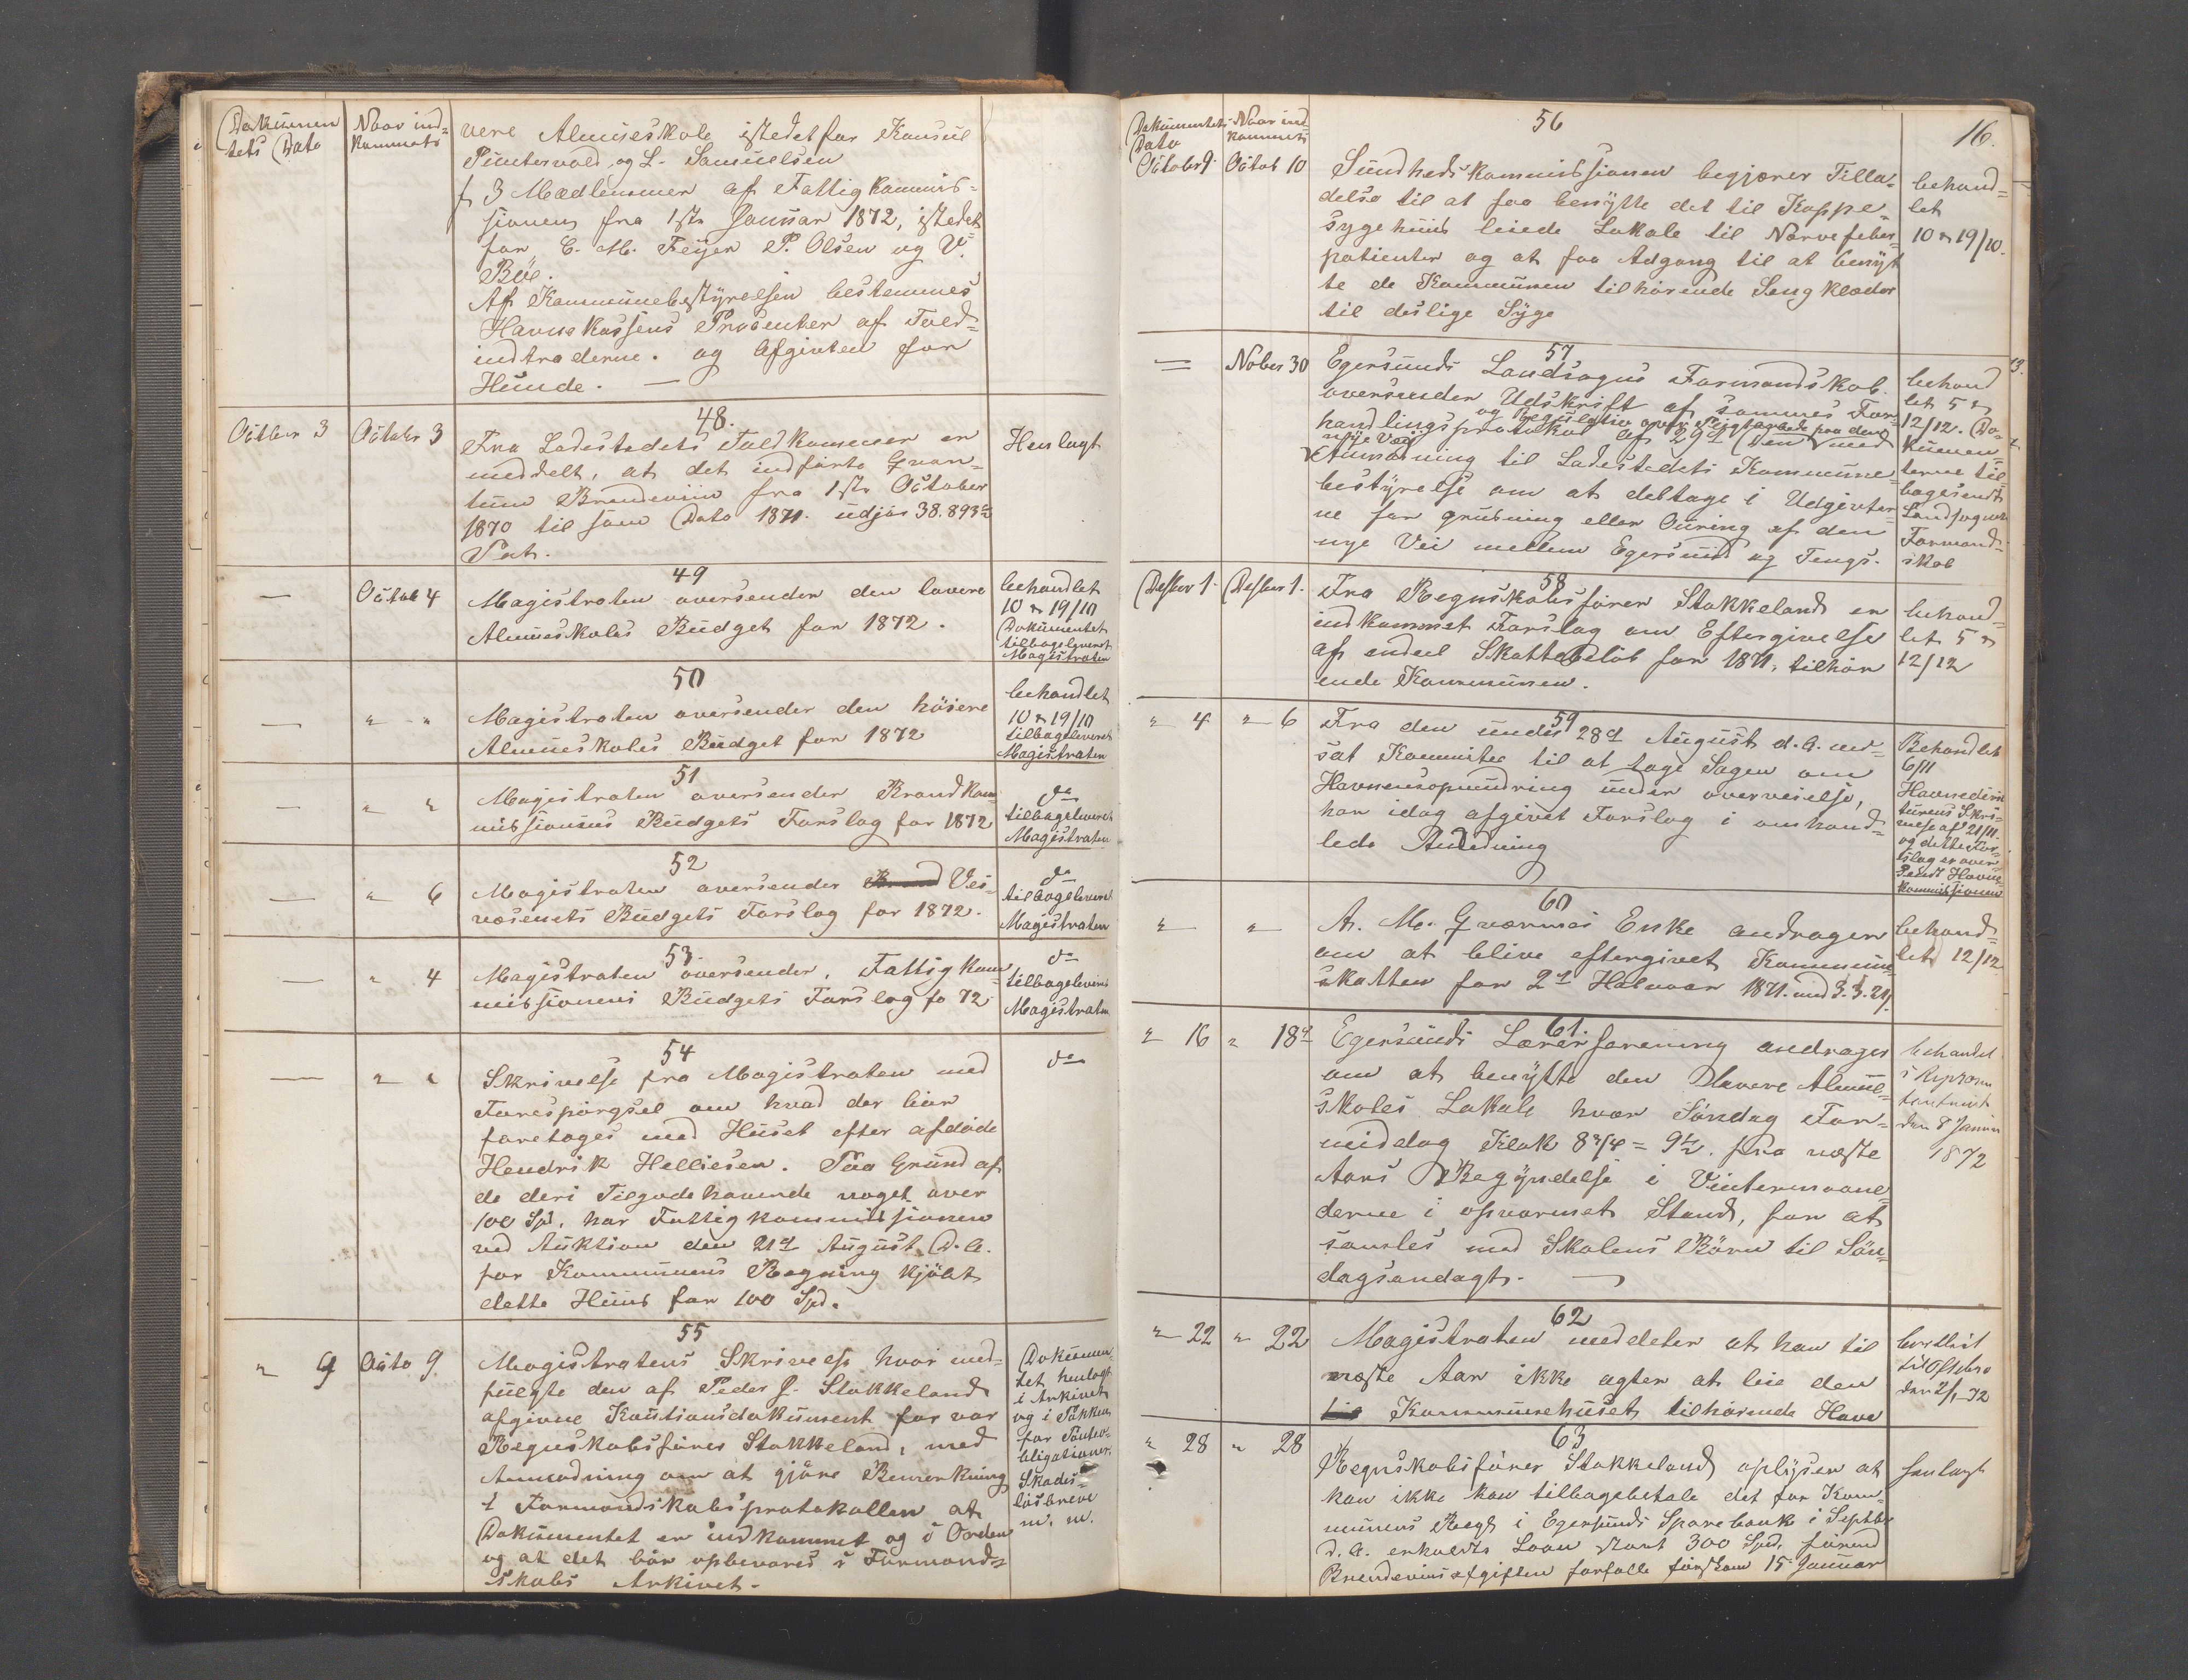 Dokumen Naar ind-
tets Dato kommets
vere Almueskole istedetfor Konsul
Puntervold og L. Samuelsen
f 3 Medlemmer af Fattigkommis-
sionen fra 1ste Januar 1872, istedet
for C. M. Feyer P. Olsen og V.
Böe.
Af Kommunebestyrelsen bestemmes
Havnekassens Procenter af Told-
indtraderne. og Afgivten for
Hunde. —
48.
October 3 Octobr 3
Fra Ladestedets Toldkammer er
meddelt, at det indförte Qvan-
tum Brændeviin fra 1ste October
1870 til som Dato 1871. udjör 38.893
Pot.
Henlagt
49
— Octob 4
Magistraten oversender den lavere
Almueskoles Budget for 1872.
behandlet
10 & 19/10
Dokumentet
tilbageleveret
Magistraten
50
— " "
Magistraten oversender den höiere
Almueskoles Budget for 1872
behandlet
10 & 19/10
tilbageleveret
Magistraten
51
— " "
Magistraten oversender Brandkom-
missionens Budgets Forslag for 1872
do
tilbageleveret
Magistraten
52
— " 6
Magistraten oversender Brand Vei-
væsenets Budgets Forslag for 1872.
do
tilbageleveret
Magistraten
53.
— " 4
Magistraten oversender. Fattigkom-
missionens Budgets Forslag fo 72
do
tilbageleveret
Magistraten
54
— " "
Skrivelse fra Magistraten med
Forespörgsel om hvad der bör
foretages med Huset efter afdöde
Hendrik Helliesen. Paa Grund af
de deri Tilgodehavende noget over
100 Spd. har Fattigkommissionen
ved Auktion den 21de August D. A.
for Kommunens Regning kjöbt
dette Huus for 100 Spd.
do
55
" 9 Octo 9.
Magistratens Skrivelse hvor med-
fulgte den af Peder J. Stokkeland
afgivne Kautionsdokument for vor
Regnskabsförer Stokkeland, med
Anmodning om at gjöre Bemerkning
i Formandskabsprotokollen at
Dokumentet er indkommet og i Orden
og at det bör opbevares i Formand-
skabs Arkivet.
Dokumen-
tet henlagt
i Arkivet
og i Pakken
for Panteo-
bligationer.
Skades-
lösbreve
m. m.
16.
Dokumentets Naar ind-
Dato kommets
56
October 9. Octob 10
Sundhedskommissionen begjærer Tilla-
delse til at faa benytte det til Koppe-
sygehuus leiede Lokale til Nervefeber-
patienter og at faa Adgang til at benyt
te de Kommunen tilhörende Sengklæder
til deslige Syge
behand-
let
10 & 19/10.
57
— Nober 30
Egersunds Landsogns Formandskab.
oversender Udskrift af sammes For-
handlingsprotokol af 29de Dens med
og Regulativ over Pligtarbeide paa den
nye Vei
Anmodning til Ladestedets Kommune-
bestyrelse om at deltage i Udgivter-
ne for grusning eller Ouring af den
nye Vei mellem Egersund og Tengs.
behand
let 5 &
12/12. Do-
kumen-
terne til-
bagesendt
Landsognets
Formand-
skab
58
Desber 1. Desber 1.
Fra Regnskabsförer Stokkeland er
indkommet Forslag om Eftergivelse
af endeel Skattebelöb for 1871, tilhör
ende Kommunen.
behand-
let 5 &
12/12
59
" 4 " 6
Fra den under 28de August d. A. ned-
sat Kommitee til at tage Sagen om
Havnensopmudring under overveielse,
har idag afgivet Forslag i omhand-
lede Anledning
Behandlet
6/11
Havnedirek
turens Skri-
velse af 21/11
og dette For-
slag er over
sendt Havne-
kommissionen
60
" — " —
A. M. Qværnes Enke andrager
om at blive eftergivet Kommune-
skatten for 2de Halvaar 1871. med
behand-
let 12/12
61.
" 16 " 18de
Egersunds Lærerforening andrager
om at benytte den Lavere Almue-
skoles Lokale hver Söndag For-
middag Klok 8 3/4 = 9 1/2. fra næste
Aars Begyndelse i Vintermaane-
derne i opvarmet Stand, for at
samles med Skolens Börn til Sön-
dagsandagt. —
behandlet
i Repræsen
tantmöde
den 8 Januar
1872
62
" 22 " 22
Magistraten meddeler at han til
næste Aar ikke agter at leie den
til Kommunehuset tilhörende Have
den 2/1-72
63
" 28 " 28
Regnskabsförer Stokkeland oplyser at
han ikke kan tilbagebetale det for Kom-
munens Regg i Egersunds Sparebank i Septbr
d. A. erholdte Laan stort 300 Spd. förend
Brendeviinsafgiften forfalle förstkom 15 Januar
henlagt